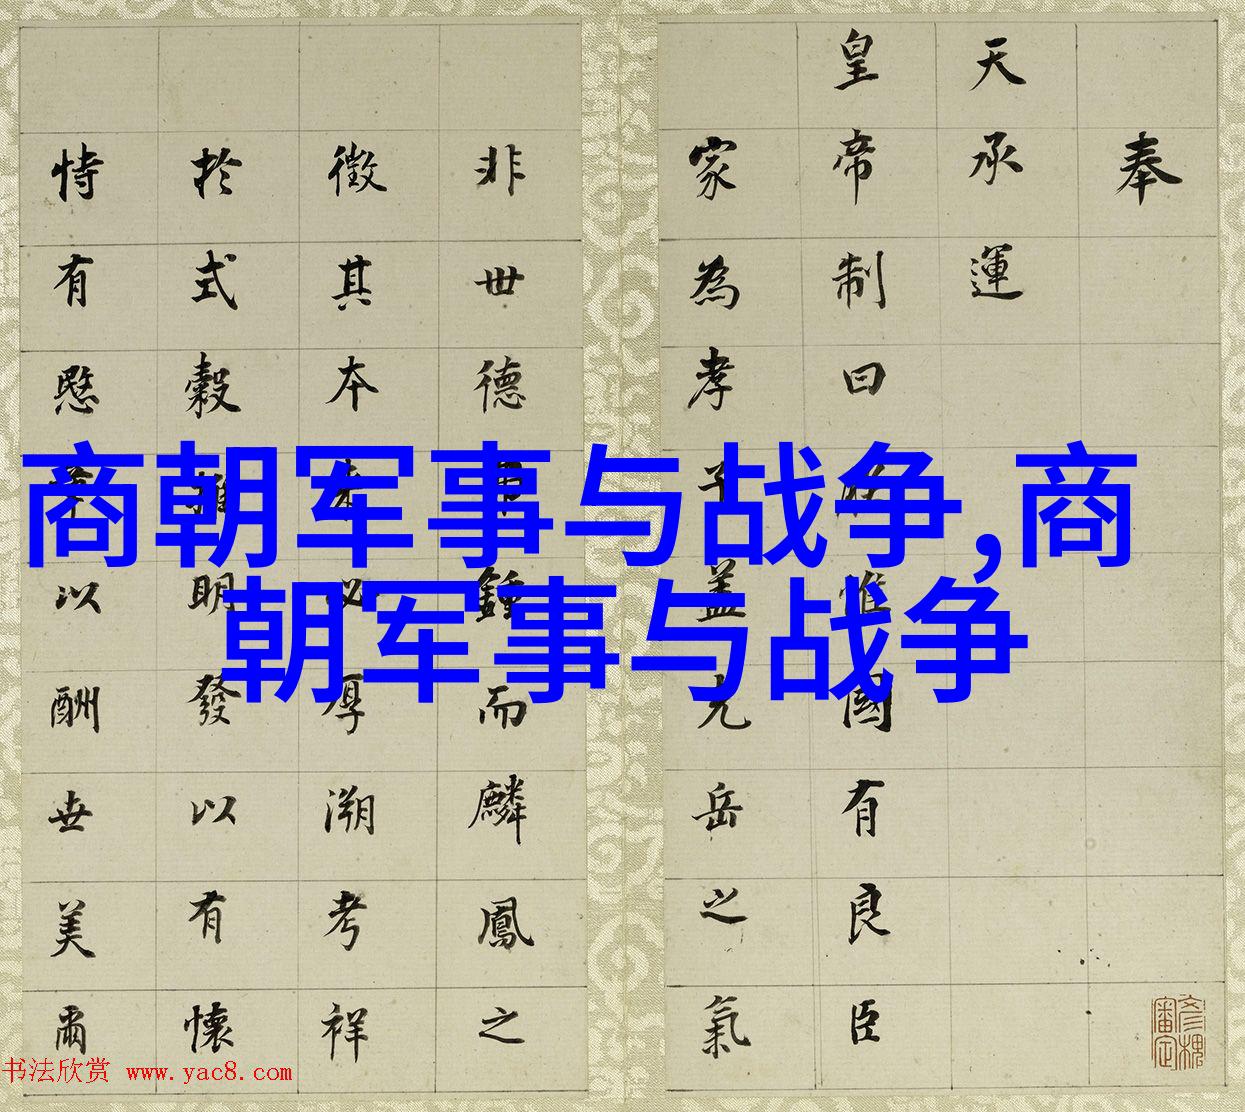 奉
天承運
皇帝制曰惟國有良臣
家為孝子蓋光岳之氣
非世德鍾而麟鳳之
徵其本必厚溯考祥
於式穀推明發以有懷
恃有愍以酬世美爾
商朝军事与战争,商
朝军事与战争
书法欣赏 www.yac8.com